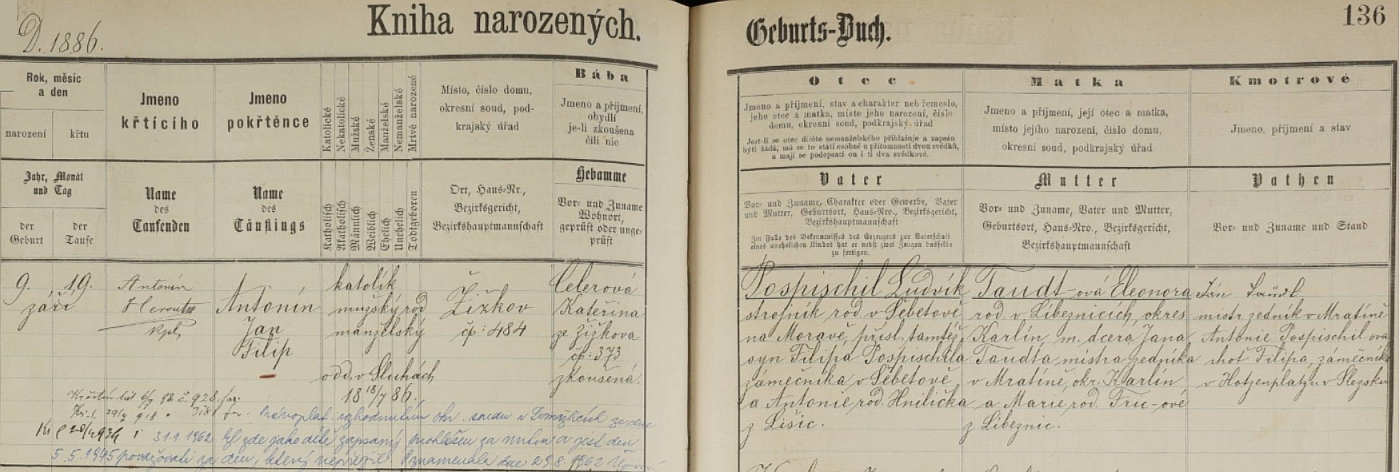 D. 1886.
Kniha narozených.
Geburts-Buch.
136
Rok, měsíc
a den
narození
křtu
Jmeno
křtícího
Jmeno
pokřtěnce
Katolické
Nekatolické
Mužské
Ženské
Manželské
Nemanželské
Mrtvě narozené
Místo, číslo domu,
okresní soud, pod-
krajský úřad
Bába
Jmeno a příjmení,
obydlí
je-li zkoušena
čili nic
Otec
Jmeno a příjmení, stav a charakter neb řemeslo,
jeho otec a matka, místo jeho narození, číslo
domu, okresní soud, podkrajský úřad
Jest-li se otec dítěte nemanželského přihlašuje a zapsán
býti žádá, má se to státi osobně u přítomnosti dvou svědků,
a mají se podepsati on i ti dva svědkové.
Matka
Jmeno a příjmení, její otec a matka,
místo jejího narození, číslo domu,
okresní soud, podkrajský úřad
Kmotrové
Jmeno, příjmení a stav
Jahr, Monat
und Tag
der
Geburt
der
Taufe
Name
des
Taufenden
Name
des
Täuflings
Katholisch
Akatholisch
Männlich
Weiblich
Ehelich
Unehelich
Todtgeboren
Ort, Haus-Nr.,
Bezirksgericht,
Bezirkshauptmannschaft
Hebamme
Vor- und Zuname
Wohnort,
geprüft oder unge-
prüft
Vater
Vor- und Zuname, Charakter oder Gewerbe, Vater
und Mutter, Geburtsort, Haus-Nro., Bezirksgericht,
Bezirkshauptmannschaft
Im Falle des Bekenntnisses des Erzeugers zur Vaterschaft
eines unehelichen Kindes hat er nebst zwei Zeugen dasselbe
zu fertigen.
Mutter
Vor- und Zuname, Vater und Mutter,
Geburtsort, Haus-Nro., Bezirksgericht,
Bezirkshauptmannschaft
Pathen
Vor- und Zuname und Stand
9.
září
19.
Antonín
Antonín
Jan
Filip
katolík
mužský rod
manželský
odd. v Sluhách
18 18/7 86.
Žižkov
čp: 484
Celerová
Kateřina
ze Žižkova
čp: 373
zkoušená.
Pospischil Ludvík
strojník rod. v Šebetově
na Moravě, přísl. tamtéž
syn Filipa Pospischila
zámečníka v Šebetově
a Antonie rod. Hnilička
z Lišic.
Taudt-ová Eleonora
rod. v Libeznicích, okres
Karlín, m. dcera Jana
Taudta, mistra zedníka
v Mratíně, okr. Karlín
a Marie rod. Fric-ové
z Libeznic.
Jan Taudt
mistr zedník v Mratíně
Antonie Pospischilová
choť Filipa, zámečníka
v Hotzenplatzu v Slezsku
31.1.1962 zde zapsaný prohlášen za mrtva a jest den
5.5.1945 považovati za den, který nepřežil. Oznamenáno dne 29.8.1962